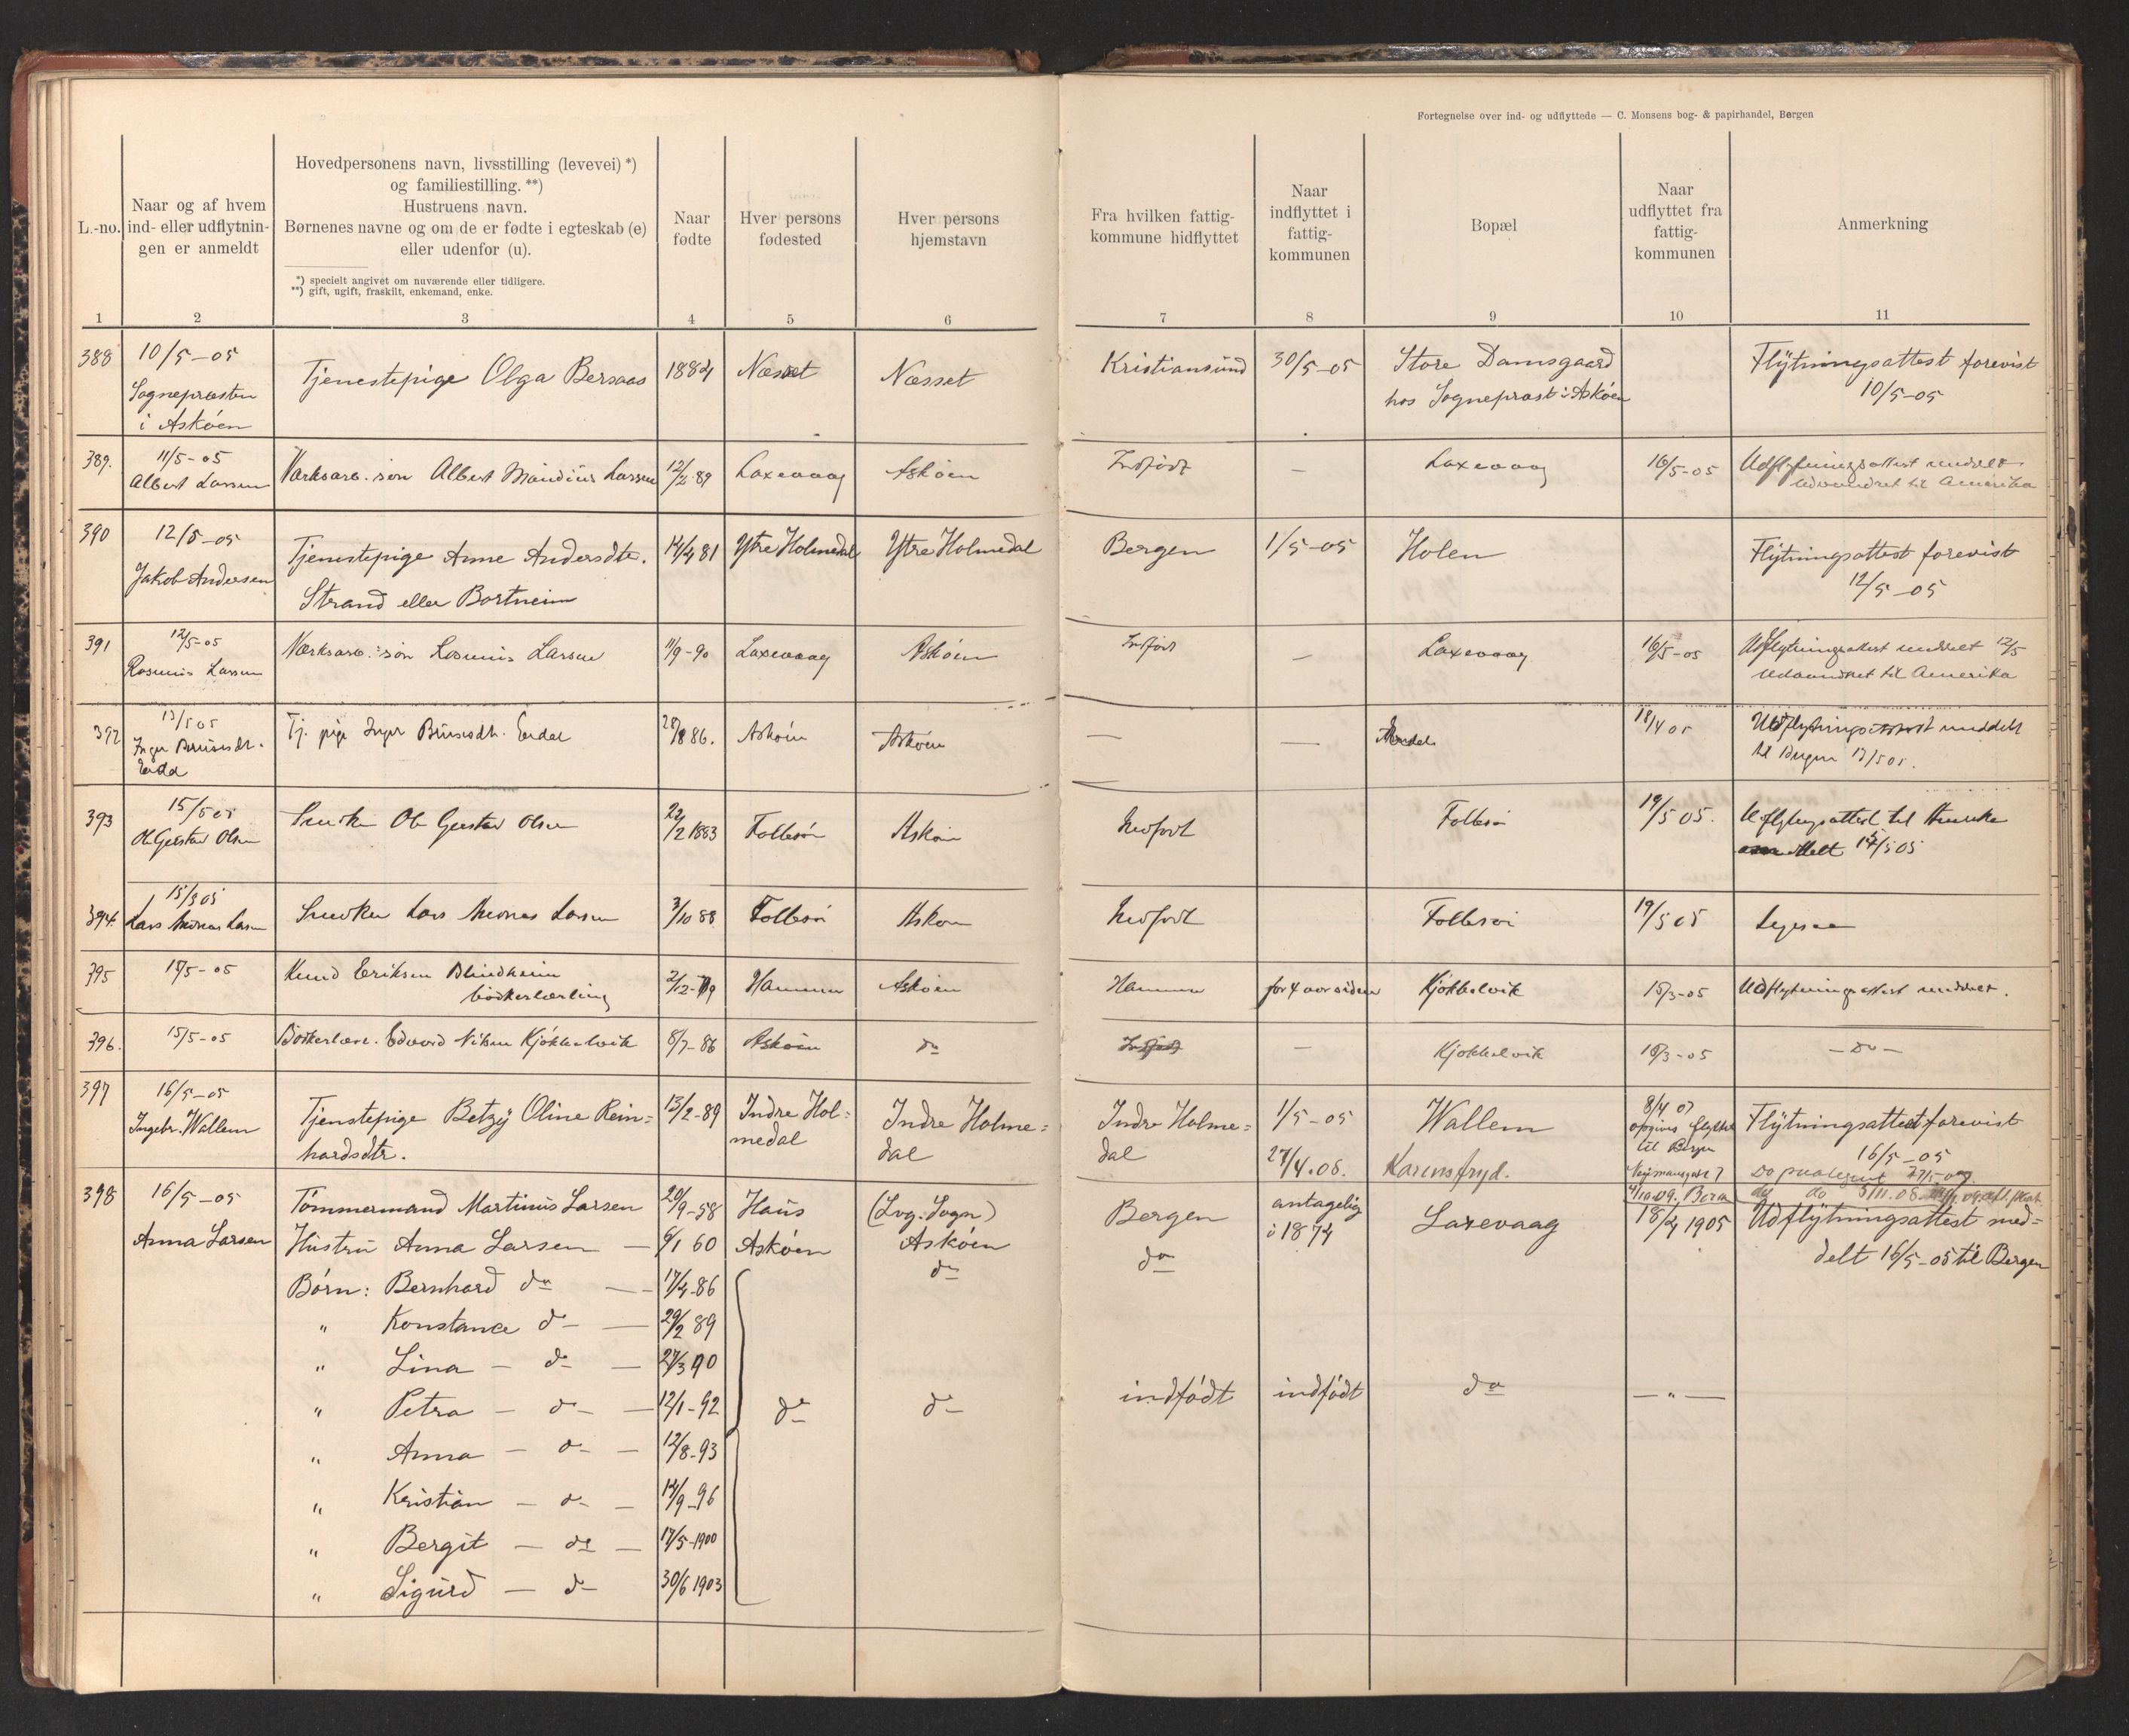 Fortegnelse over ind- og udflyttede — C. Monsens bog- & papirhandel, Bergen
L.-no.
Naar og af hvem
ind- eller udflytnin-
gen er anmeldt
Hovedpersonens navn, livsstilling (levevei) *)
og familiestilling. **)
Hustruens navn.
Børnenes navne og om de er fødte i egteskab (e)
eller udenfor (u).
*) specielt angivet om nuværende eller tidligere.
**) gift, ugift, fraskilt, enkemand, enke.
Naar
fødte
Hver persons
fødested
Hver persons
hjemstavn
Fra hvilken fattig-
kommune hidflyttet
Naar
indflyttet i
fattig-
kommunen
Bopæl
Naar
udflyttet fra
fattig-
kommunen
Anmerkning
1 2 3 4 5 6 7 8 9 10 11
388
10/5-05
Sognepræsten
i Askøen
Tjenestepige Olga Bersaas
1884
Næsset
Næsset
Kristiansund
30/5-05
Store Damsgaard
hos Sogneprest i Askøen
Flytningsattest forevist
10/5-05
389.
11/5-05
Albert Larsen
Værksarb. søn Albert Mandius Larsen
12/2-89
Laxevaag
Askøen
Indfødt
—
Laxevaag
16/5-05
Udflytningsattest meddelt
Udvandret til Amerika
390
12/5-05
Jakob Andersen
Tjenestepige Anne Andersdtr.
Strand eller Bortneim
14/4 81
Ytre Holmedal
Ytre Holmedal
Bergen
1/5-05
Holen
Flytningsattest forevist
12/5-05
391
12/5-05
Rasmus Larsen
Værksarb. søn Rasmus Larsen
11/9-90
Laxevaag
Askøen
Indfødt
—
Laxevaag
16/5-05
Udflytningsattest meddelt 12/5
Udvandret til Amerika
392
13/5 05
Inger Brunsdt.
Erdal
Tj. pige Inger Brunsdt. Erdal
28/8 86.
Askøen
Askøen
—
—
18/4 05
Udflytningsattest meddelt
til Bergen 13/5 05.
393
15/5 05
Ole Gustav Olsen
Snedker Ole Gustav Olsen
22/2 1883
Follesø
Askøen
Indfødt
Follesø
19/5 05.
Udflytningsattest til Amerika
meddelt 15/5 05
394.
15/5 05
Lars Andreas Larsen
Snedker Lars Andreas Larsen
3/10 88
Follesø
Askøen
Indfødt
Follesø
19/5 05
Ligesaa
395
15/5-05
Knud Eriksen Blindheim
bødkerlærling
2/12-79
Hammer
Askøen
Hammer
for 4 aar siden
Kjøkkelvik
15/3-05
Udflytningsattest meddelt.
396.
15/5-05
Bødkerlære. Edvard Nilsen Kjøkkelvik
8/7-86
Askøen
do
Indfødt
—
Kjøkkelvik
15/3-05
— do —
397
16/5-05
Ingebr. Wallem
Tjenstepige Betzy Oline Rein=
hardsdtr.
13/2-89
Indre Hol=
medal
Indre Holme=
dal
Indre Holme=
dal
1/5-05
27/4.08.
Wallem
Karensfryd.
8/4 07
opgives flyttet
til Bergen
4/10.09. Bergen
Flytningsattest forevist
16/5-05
do do 5/11.08.
398
16/5-05
Anna Larsen
Tømmermand Martinus Larsen
20/9-58
Haus
(Lvg. Sogn)
Askøen
Bergen
antagelig
i 1874
Laxevaag
18/4 1905
Udflytningsattest med=
delt 16/5-05 til Bergen
Hustru Anna Larsen —
6/1 60
Askøen
do
do
Børn: Bernhard do — 17/4-86
" Konstance do — 29/2 89
" Lina — do — 27/3 90
" Petra — do — 12/1-92
do
do
indfødt
indfødt
do
— " —
" Anna — do — 12/8-93
" Kristian — do — 14/9-96
" Bergit — do — 17/5-1900
" Sigurd — do 30/6 1903